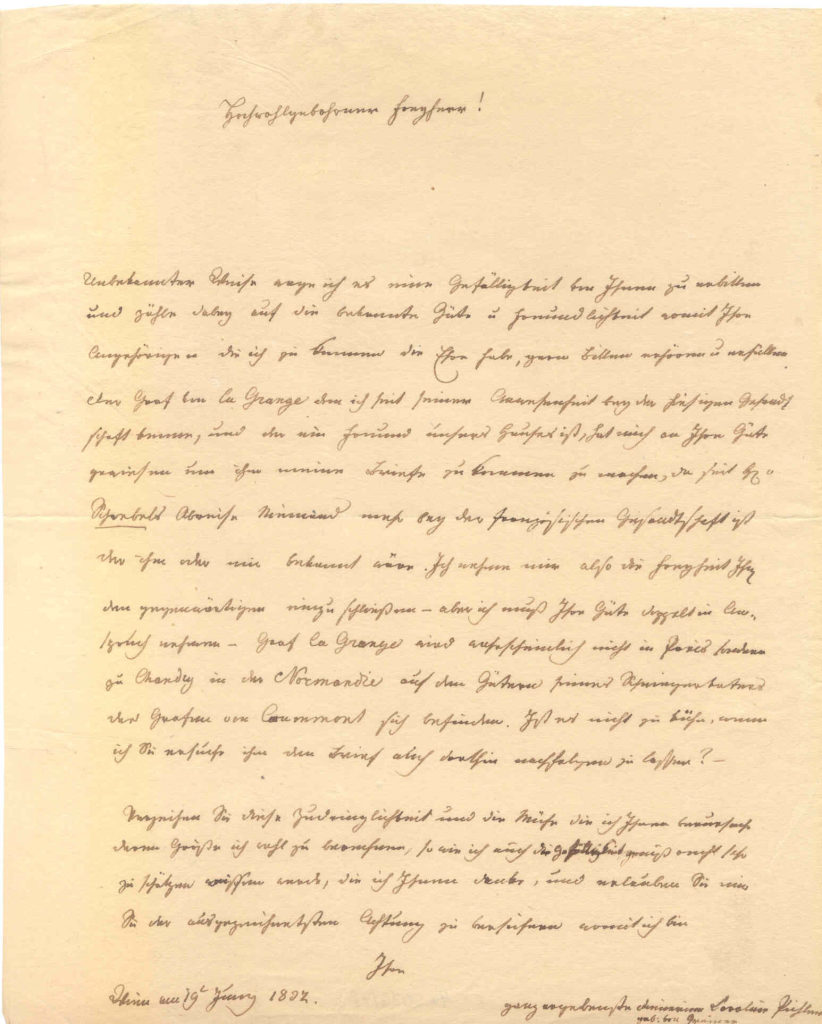 Hochwohlgebohrner Freyherr!
Unbekannter Weise wage ich es eine Gefälligkeit von Ihnen zu erbitten
und zähle dabey auf die bekannte Güte u Freundlichkeit womit Ihre
Angehörigen die ich zu kennen die Ehre habe, gern Bitten erhören u erfüllen
Der Graf von la Grange den ich seit seiner Anwesenheit bey der hiesigen Gesandt
schaft kenne, und der ein Freund unsers Hauses ist, hat mich an Ihre Güte
gewiesen um ihm meine Briefe zu kommen zu machen, da seit H:
Schwebels Abreise Niemand mehr bey der französischen Gesandtschaft ist
der ihm oder mir bekannt wäre. Ich nehme mir also die Freyheit Ihnen
den gegenwärtigen einzu schließen – aber ich muß Ihre Güte doppelt in An-
spruch nehmen – Graf la Grange wird wahrscheinlich nicht in Paris sondern
zu in der Normandie auf den Gütern seines Schwiegervaters
des Grafen von Caumont sich befinden. Ist es nicht zu kühn, wenn
ich Sie ersuche ihm den Brief auch dorthin nachfolgen zu lassen? –
Verzeihen Sie diese Zudringlichkeit und die Mühe die ich Ihnen verursache
deren Größe ich wohl zu berechnen, so wie ich auch die Gefälligkeit gewiß recht sehr
zu schätzen wissen werde, die ich Ihnen danke, und erlauben Sie mir
Sie der ausgezeichnetsten Achtung zu versichern womit ich bin
Ihre
Wien am 19t Juny 1832.
ganz ergebenste Dienerin Caroline Pichler
geb: von Greiner